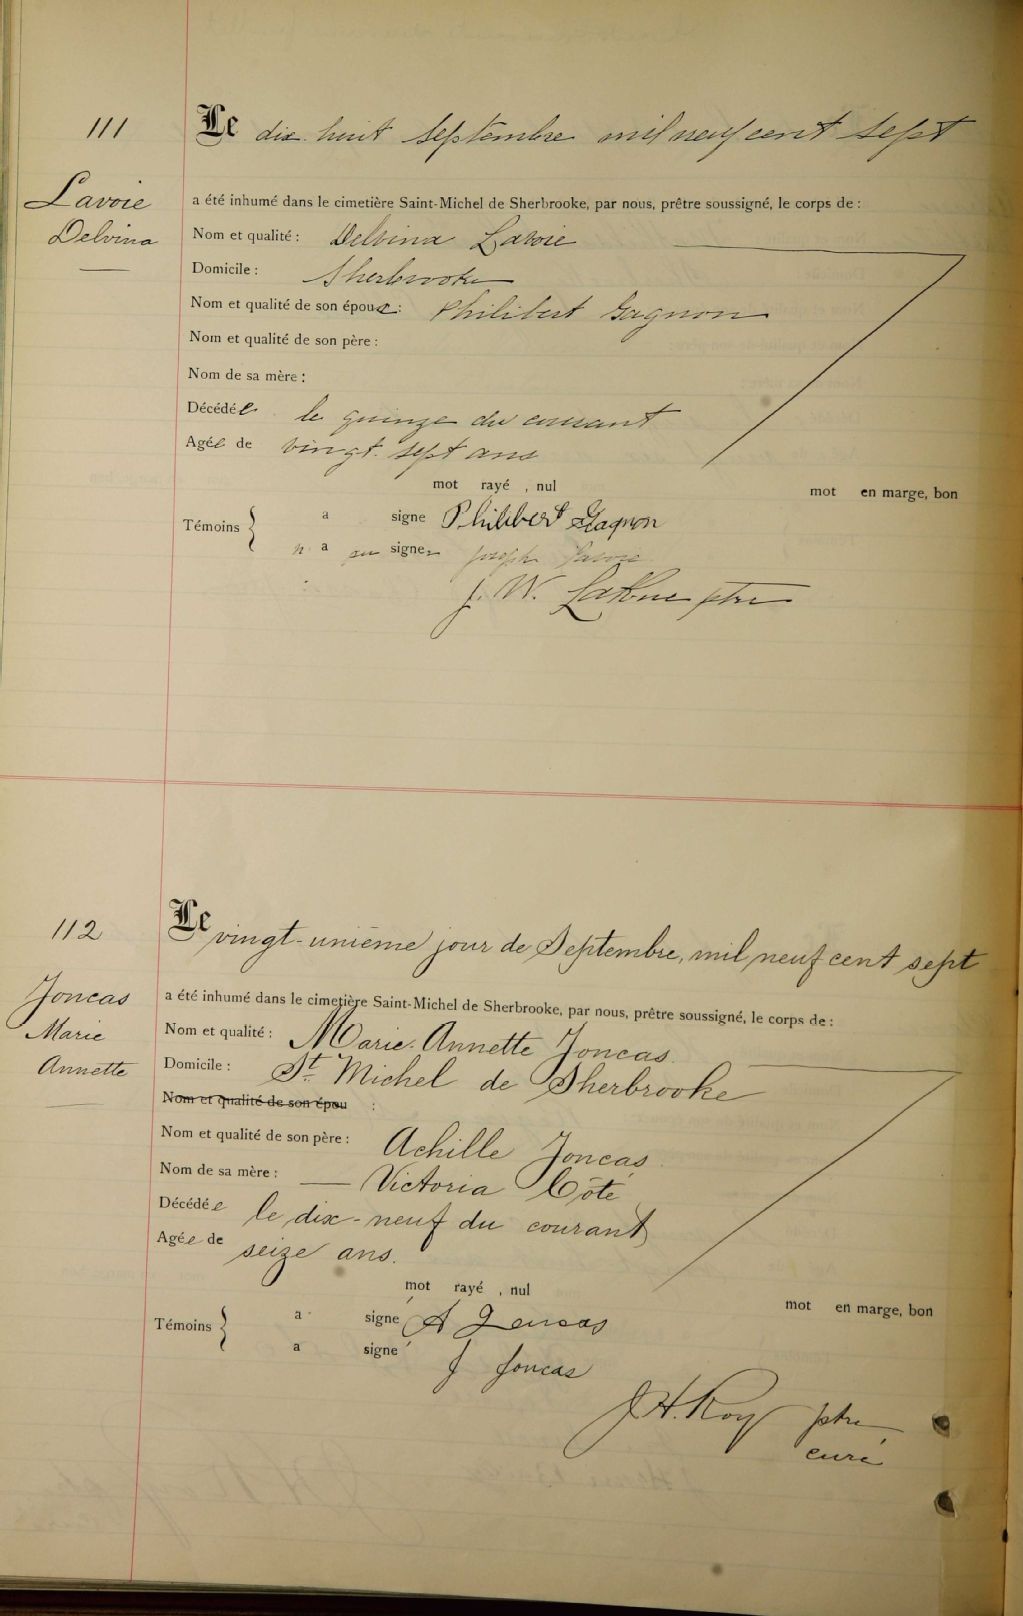 111
Le dix huit Septembre mil neuf cent sept
Lavoie
Delvina
a été inhumé dans le cimetière Saint-Michel de Sherbrooke, par nous, prêtre soussigné, le corps de :
Nom et qualité : Delvina Lavoie
Domicile : Sherbrooke
Nom et qualité de son époux : Philibert Gagnon
Nom et qualité de son père :
Nom de sa mère :
Décédée le quinze du courant
Agée de vingt-sept ans
mot rayé , nul
mot en marge, bon
Témoins { a signé Philibert Gagnon
n'a pu signer Joseph Lavoie
J. W. ptre
112
Le vingt-unième jour de Septembre, mil neuf cent sept
Joncas
Marie
Annette
a été inhumé dans le cimetière Saint-Michel de Sherbrooke, par nous, prêtre soussigné, le corps de :
Nom et qualité : Marie-Annette Joncas
Domicile : St Michel de Sherbrooke
Nom et qualité de son épou :
Nom et qualité de son père : Achille Joncas
Nom de sa mère : — Victoria Côté
Décédée le dix-neuf du courant
Agée de seize ans.
mot rayé , nul
mot en marge, bon
Témoins { a signé A Joncas
a signé J Joncas
J H. Roy ptre
curé